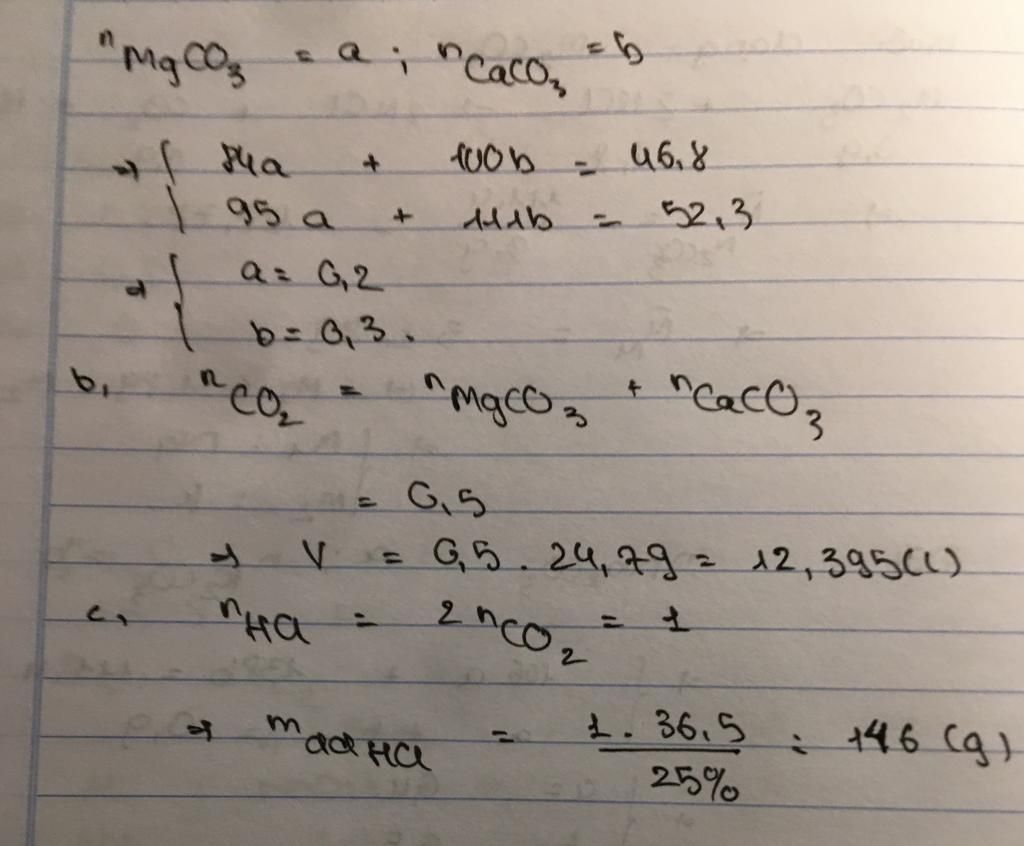 nMgCO₃ = a ; nCaCO₃ = b
⇒ { 84a + 100b = 46,8
95a + 111b = 52,3
⇒ { a = 0,2
b = 0,3.
b, nCO₂ = nMgCO₃ + nCaCO₃
= 0,5
⇒ V = 0,5 . 24,79 = 12,395(l)
c, nHCl = 2nCO₂ = 1
⇒ mddHCl = 1 . 36,5 / 25% = 146 (g)